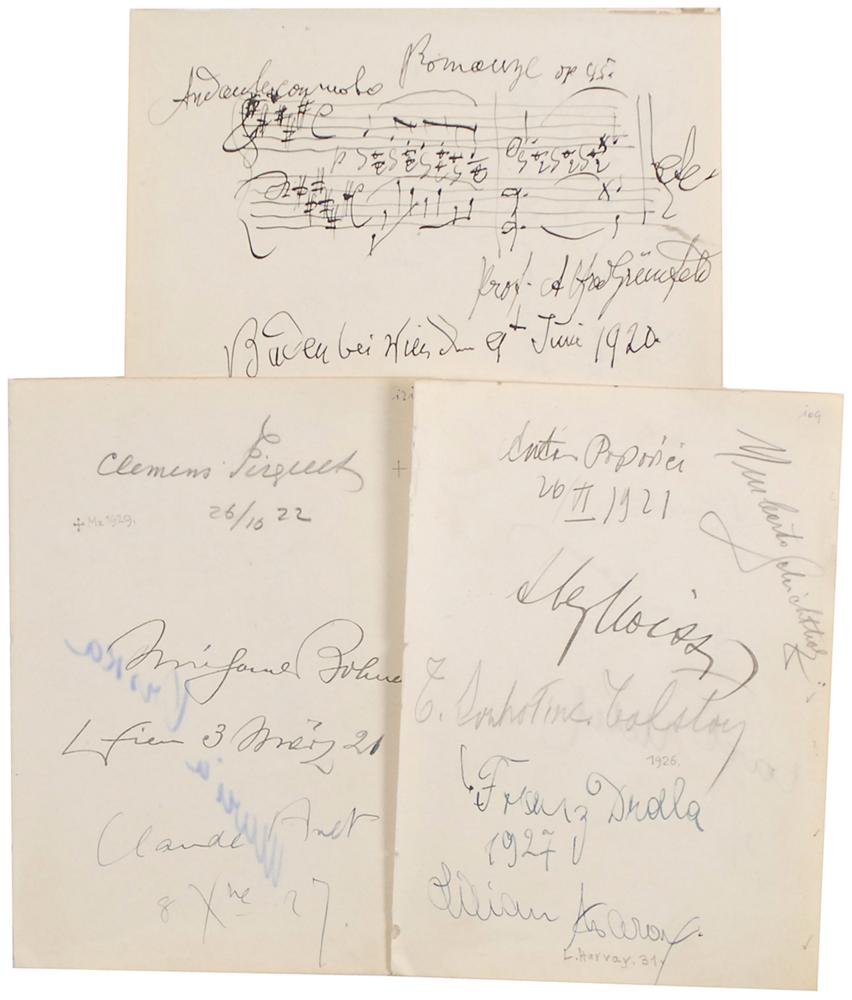 Romanze op 45.
Andante con moto
etc.
Prof. Alfred Grünfeld
Baden bei Wien den 9t Juni 1920
121
Clemens Pirquet
26/10 22
1929.
Bohnen
Wien 3 März 21
Claude Anet
8 Xbre 27.
Maria
109
Popovici
26/II 1921
T. Soukhotine Tolstoy
1926.
Franz Drdla
1927
Lilian Harvay
L. Harvay. 31.